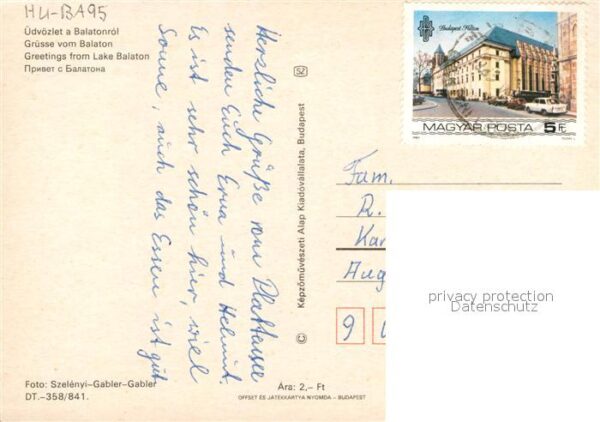 HU-BA95
Üdvözlet a Balatonról
Grüsse vom Balaton
Greetings from Lake Balaton
Привет с Балатона
Herzliche Grüße vom Plattensee
senden Euch Erna und Helmut.
Es ist sehr schön hier, viel
Sonne, auch das Essen ist gut
52
© Képzőművészeti Alap Kiadóvállalata, Budapest
Budapest Hilton
MAGYAR POSTA 5 Ft
Fam.
R.
Kar
Aug
9
privacy protection
Datenschutz
Foto: Szelényi–Gabler–Gabler
DT.–358/841.
Ára: 2,– Ft
OFFSET ÉS JÁTÉKKÁRTYA NYOMDA – BUDAPEST